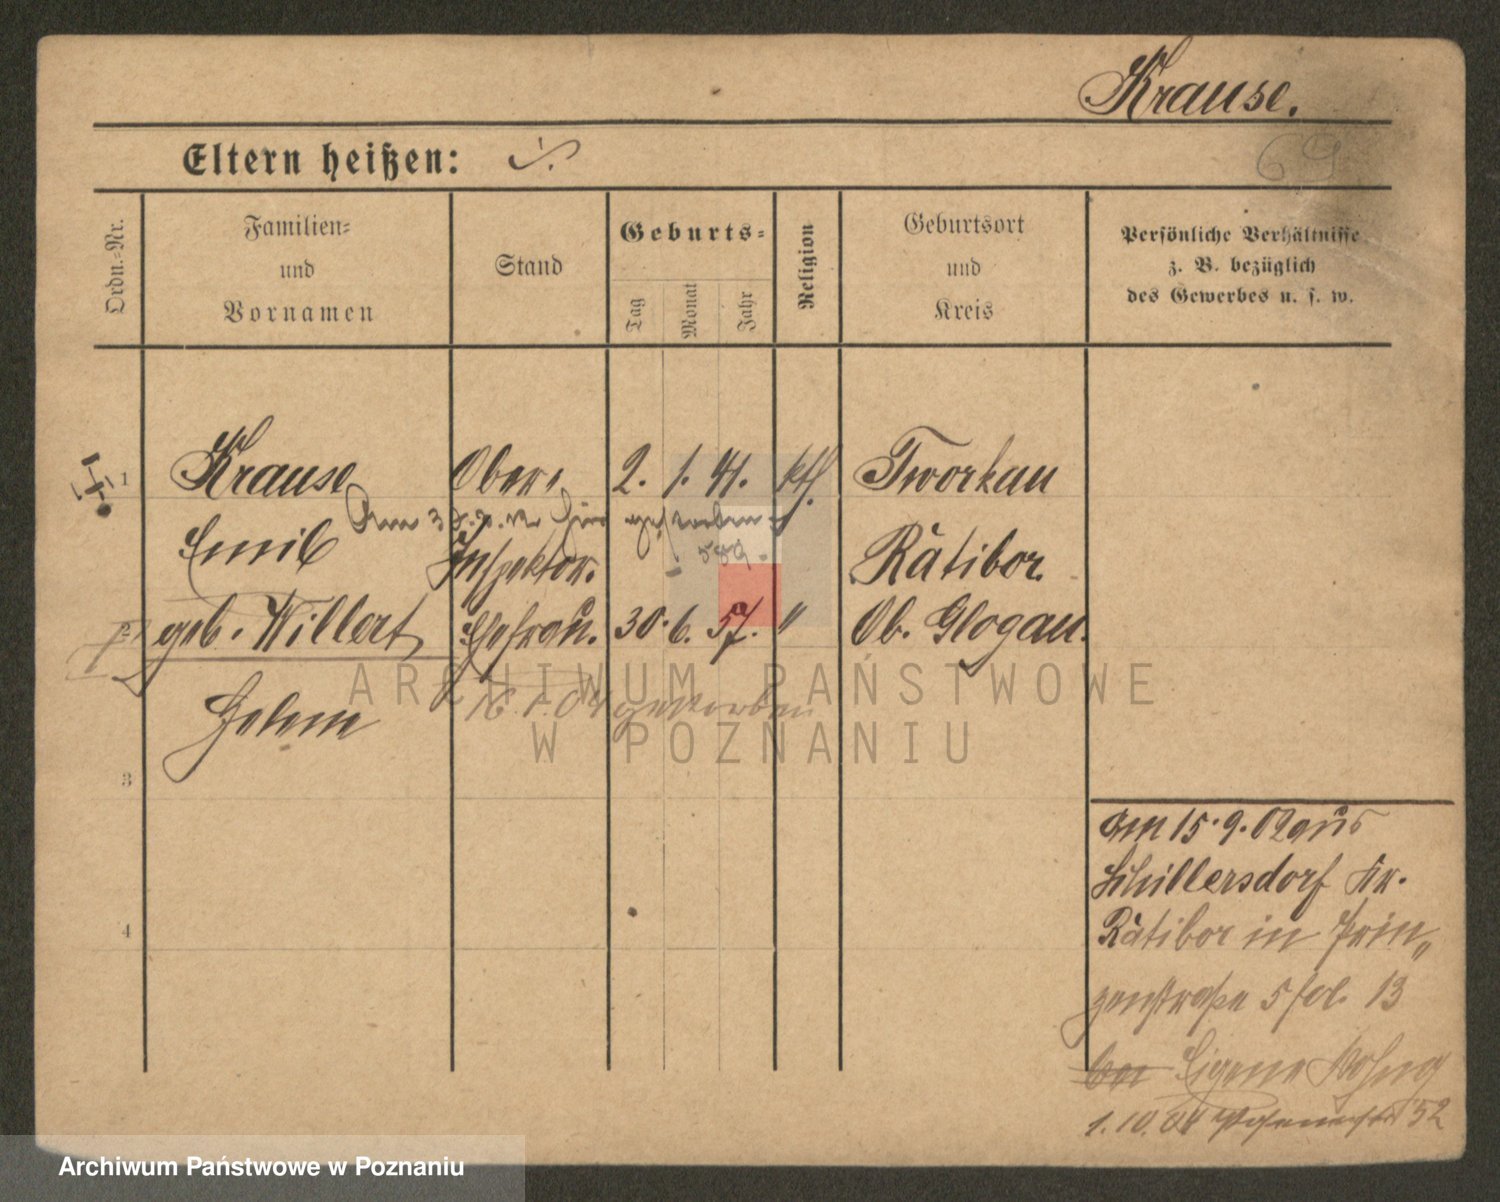 Krause.
69
Eltern heißen: ./.
Ordn.-Nr.
Familien-
und
Vornamen
Stand
Geburts-
Tag
Monat
Jahr
Religion
Geburtsort
und
Kreis
Persönliche Verhältnisse
z. B. bezüglich
des Gewerbes u. s. w.
1 Krause Ober- 2. 1. 41. kth. Tworkau
Am gestorben
Emil Inspektor. Ratibor.
589.
2 geb. Willert Ehefrau. 30. 6. 57. " Ob. Glogau.
Helene 16.1.04 gestorben
ARCHIWUM PAŃSTWOWE
W POZNANIU
3
am 15.9.02 aus
Schillersdorf Kr.
4
Ratibor in Prin„
zenstraße 5 fol. 13
bei Eigene Wohng
1.10.04 52
Archiwum Państwowe w Poznaniu